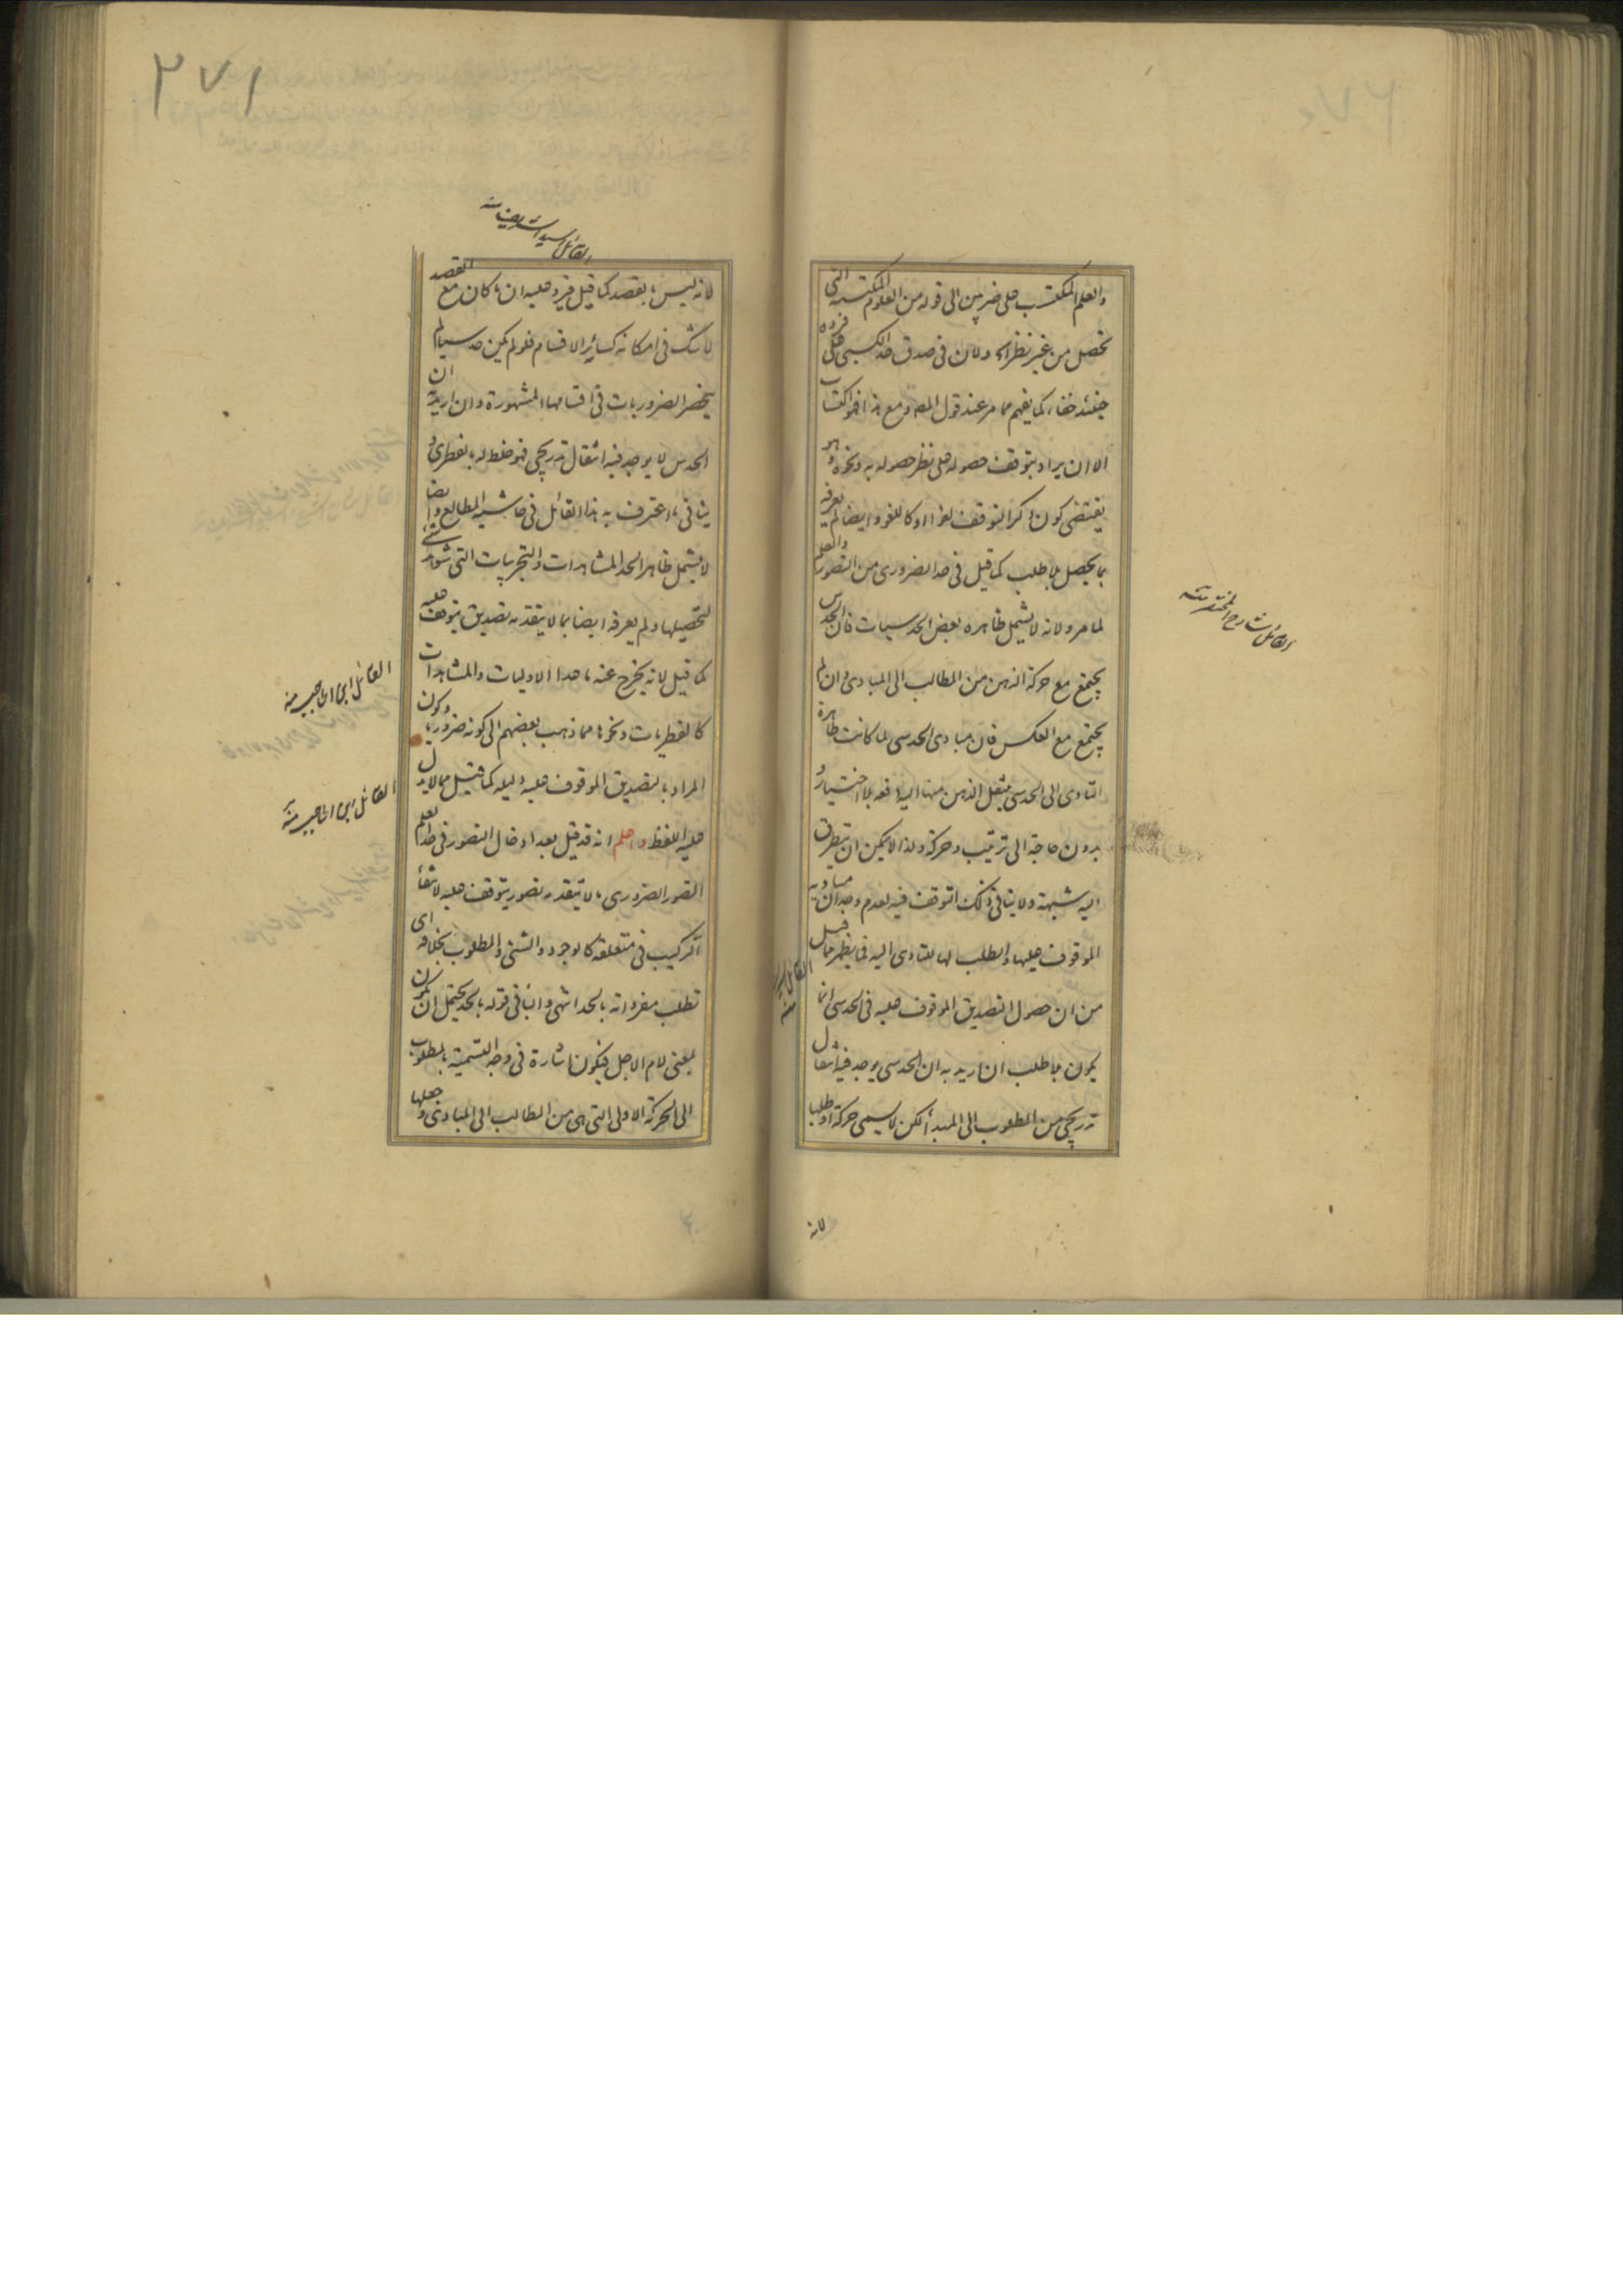 والعلم المكتسب على ضربين الى قوله من العلوم المكتسبة التى
تحصل من غير نظر اه ولان فى صدق حد الكسبى على فرده
حينئذ خفاء كما يفهم مما مر عند قول المص ومع هذا فهو اكتساب
الا ان يراد بتوقف حصوله على نظر حصوله به ونحوه وهو
يقتضى كون ذكر التوقف لغوا او كاللغو وايضا لم يعرفه
بما يحصل بلا طلب كما قيل فى حد الضرورى من التصور والعلم
لما مر ولانه لا يشمل ظاهره بعض الحدسيات فان الحدس
يجتمع مع حركة الذهن من المطالب الى المبادى وان لم
يجتمع مع العكس فان مبادى الحدسى لما كانت ظاهرة
التادى الى الحدسى ينتقل الذهن منها اليه دفعة بلا اختيار و
بدون حاجة الى ترتيب وحركة ولذا لا يمكن ان يتطرق
اليه شبهة ولا ينافى ذلك التوقف فيه لعدم وجدان مباديه
الموقوف عليها والطلب لها للتادى اليه فما يظهر مما قيل
من ان حصول التصديق الموقوف عليه فى الحدسى انما
يكون بلا طلب ان اريد به ان الحدسى يوجد فيه انتقال
تدريجى من المطلوب الى المبدأ لكن لا يسمى حركة او طلبا
لانه
القائل شارح المختصر منه
٢٧١
القائل السيد الشريف منه
لانه ليس بالقصد كما قيل فيرد عليه ان ما كان مع القصد
لا شك فى امكانه كسائر الاقسام فلو لم يكن حدسيا لم
ينحصر الضروريات فى اقسامها المشهورة وان اريد به ان
الحدس لا يوجد فيه انتقال تدريجى فهو خلط له بالفطرى و
ينافى ما اعترف به هذا القائل فى حاشية المطالع وايضا
لا يشمل ظاهر الحد المشاهدات والتجربيات التى
لتحصيلها ولم يعرفه ايضا بما لا يتقدمه تصديق يتوقف عليه
كما قيل لانه يخرج عنه ما عدا الاوليات والمشاهدات
كالفطريات ونحوها مما ذهب بعضهم الى كونه ضروريا وكون
المراد بالتصديق الموقوف عليه دليله كما قيل مما لا يدل
عليه اللفظ واعلم انه قد قيل بعد ادخال التصور فى حد العلم
التصور الضرورى ما لا يتقدمه تصور يتوقف عليه لانتفاء
التركيب فى متعلقه كالوجود والشئ والمطلوب بخلافه اى
تطلب مفرداته بالحد انتهى والباء فى قوله بالحد يحتمل ان يكون
بمعنى لام الاجل فيكون اشارة فى وجه التسمية بالمطلوب
الى الحركة الاولى التى هى من المطالب الى المبادى وجعلها
القائل ابن الحاجب منه
القائل ابن الحاجب منه